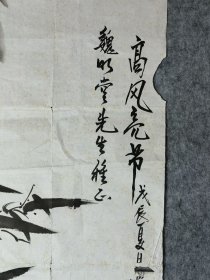 高风亮节
戊辰夏日
魏明堂先生雅正